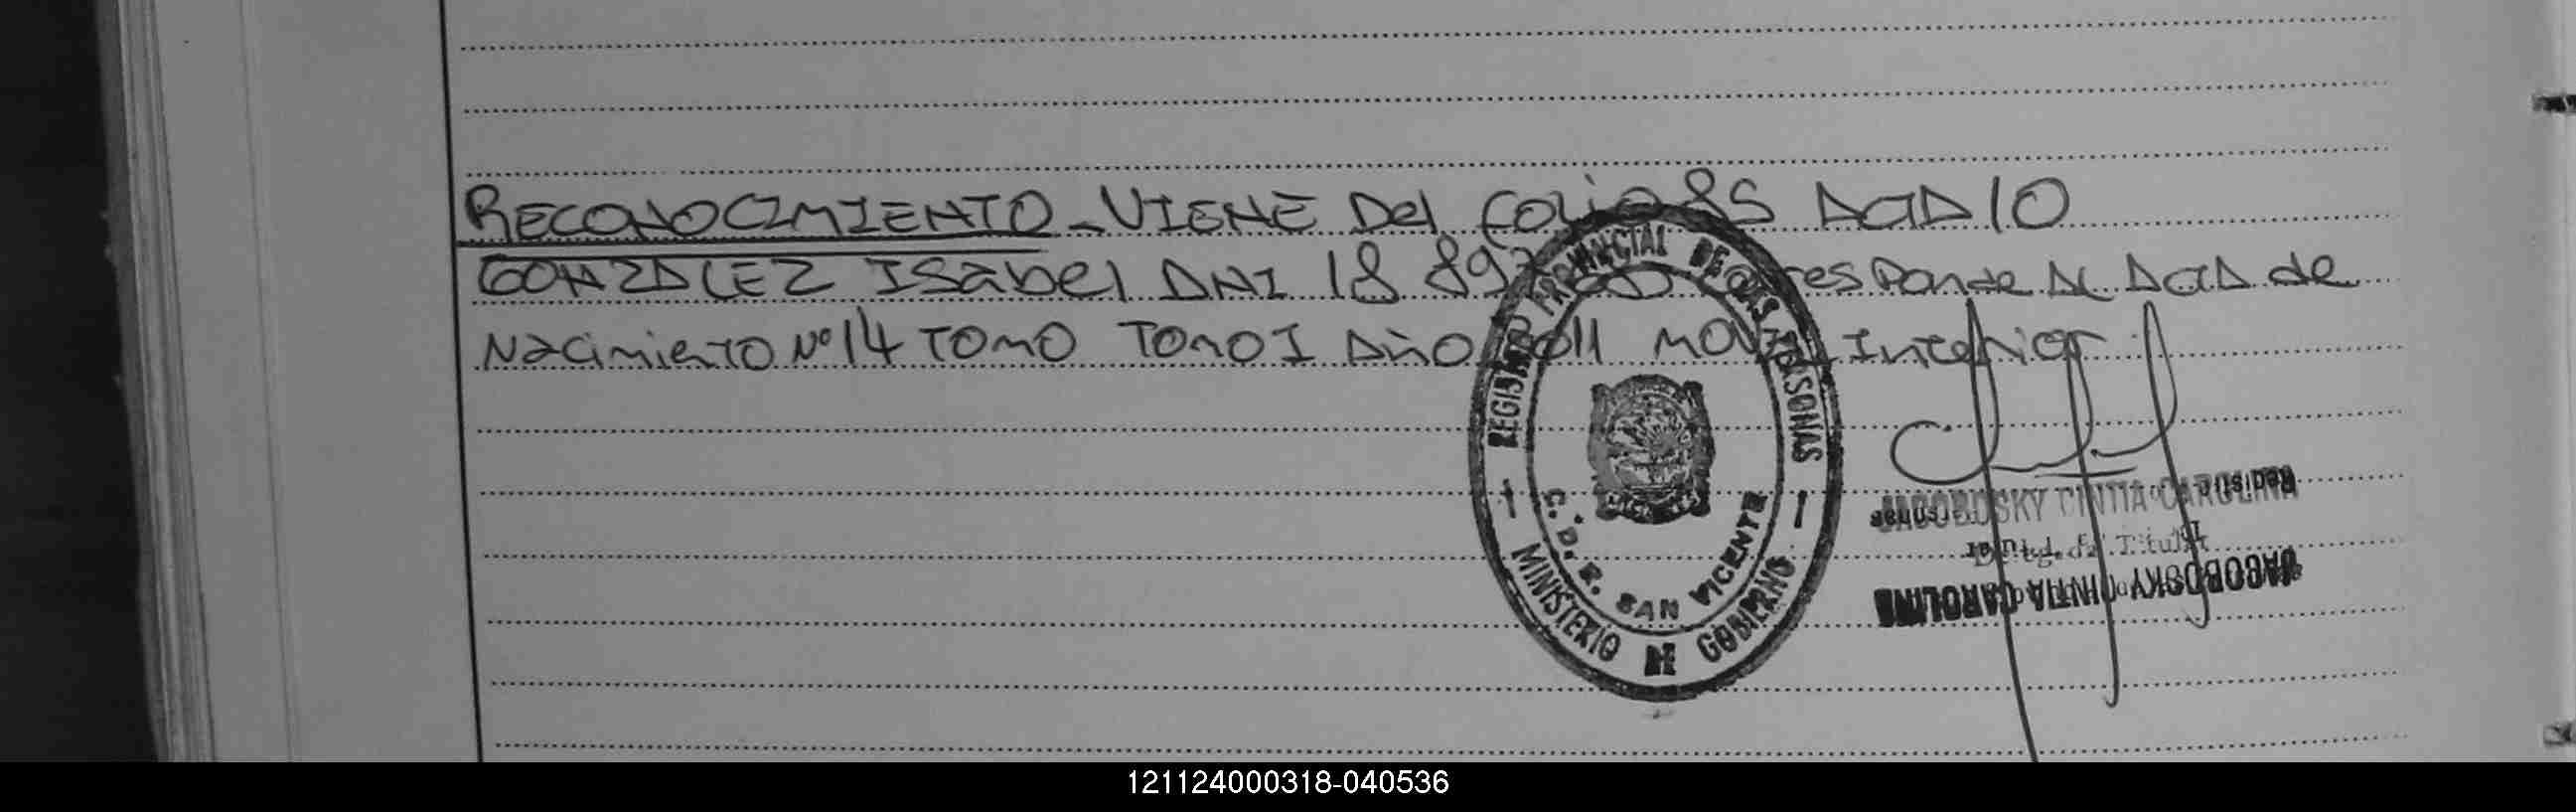 RECONOCIMIENTO - VIENE Del FOLIO 85 ACTA 10
GONZALEZ Isabel DNI 18 897 corresponde Al ACTA de
Nacimiento Nº 14 TOMO TOMO I AÑO 2011 MOVIL Interior
REGISTRO PROVINCIAL DE LAS PERSONAS
C. D. R. SAN VICENTE
MINISTERIO DE GOBIERNO
JACOBOSKY CINTIA CAROLINA
Titular
JACOBOSKY CINTIA CAROLINE
121124000318-040536